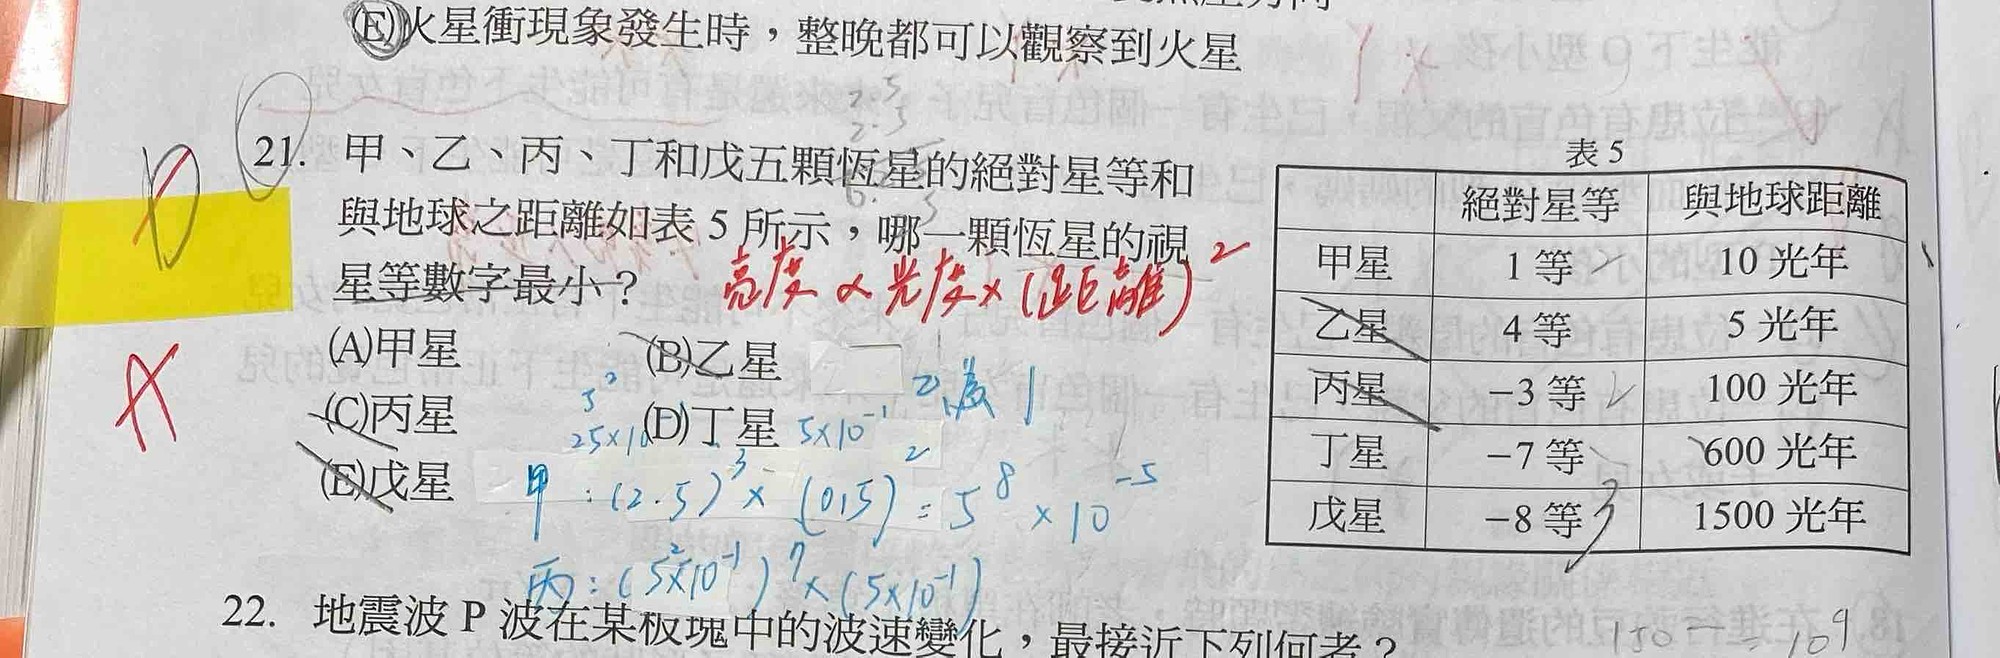 (E)火星衝現象發生時，整晚都可以觀察到火星
2.5
2.5
21. 甲、乙、丙、丁和戊五顆恆星的絕對星等和
與地球之距離如表 5 所示，哪一顆恆星的視
星等數字最小？
亮度 ∝ 光度×(距離)²
(A)甲星 (B)乙星
(C)丙星 (D)丁星
(E)戊星
乙為 1
5²
25×10
5×10⁻¹
甲：(2.5)³×(0.5)² = 5⁸×10⁻⁵
丙：(5²×10⁻¹)⁷×(5×10⁻¹)
表 5
絕對星等 與地球距離
甲星 1 等 10 光年
乙星 4 等 5 光年
丙星 −3 等 100 光年
丁星 −7 等 600 光年
戊星 −8 等 1500 光年
22. 地震波 P 波在某板塊中的波速變化，最接近下列何者？